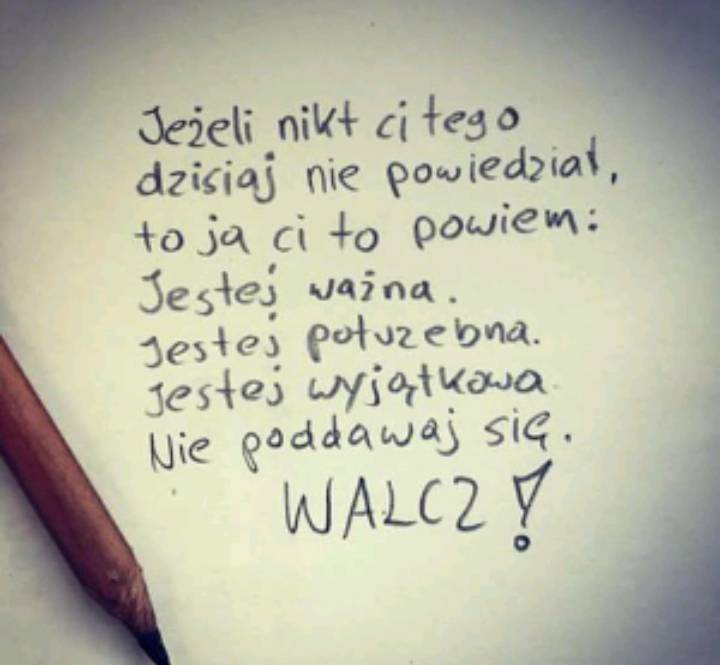 Jeżeli nikt ci tego
dzisiaj nie powiedział,
to ja ci to powiem:
Jesteś ważna.
Jesteś potrzebna.
Jesteś wyjątkowa.
Nie poddawaj się.
WALCZ!